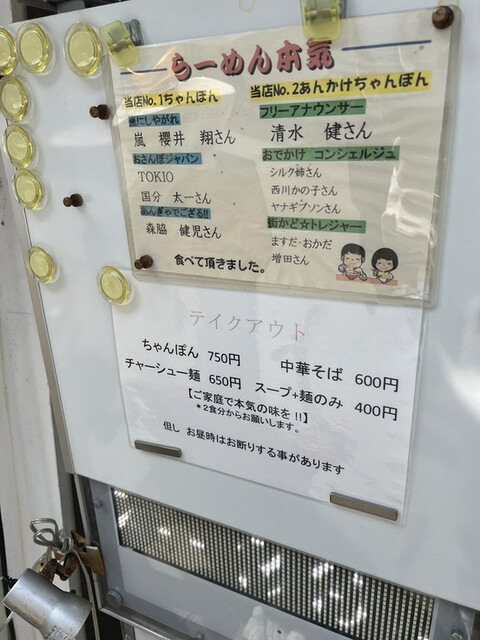 らーめん本気
当店No.1ちゃんぽん
当店No.2あんかけちゃんぽん
にしやがれ
嵐 櫻井 翔さん
おさんぽジャパン
TOKIO
国分 太一さん
あんぎゃでござる!!
森脇 健児さん
フリーアナウンサー
清水 健さん
おでかけ コンシェルジュ
シルク姉さん
西川かの子さん
ヤナギブソンさん
街かど☆トレジャー
ますだ・おかだ
増田さん
食べて頂きました。
テイクアウト
ちゃんぽん 750円
中華そば 600円
チャーシュー麺 650円
スープ+麺のみ 400円
【ご家庭で本気の味を!!】
*2食分からお願いします。
但し お昼時はお断りする事があります